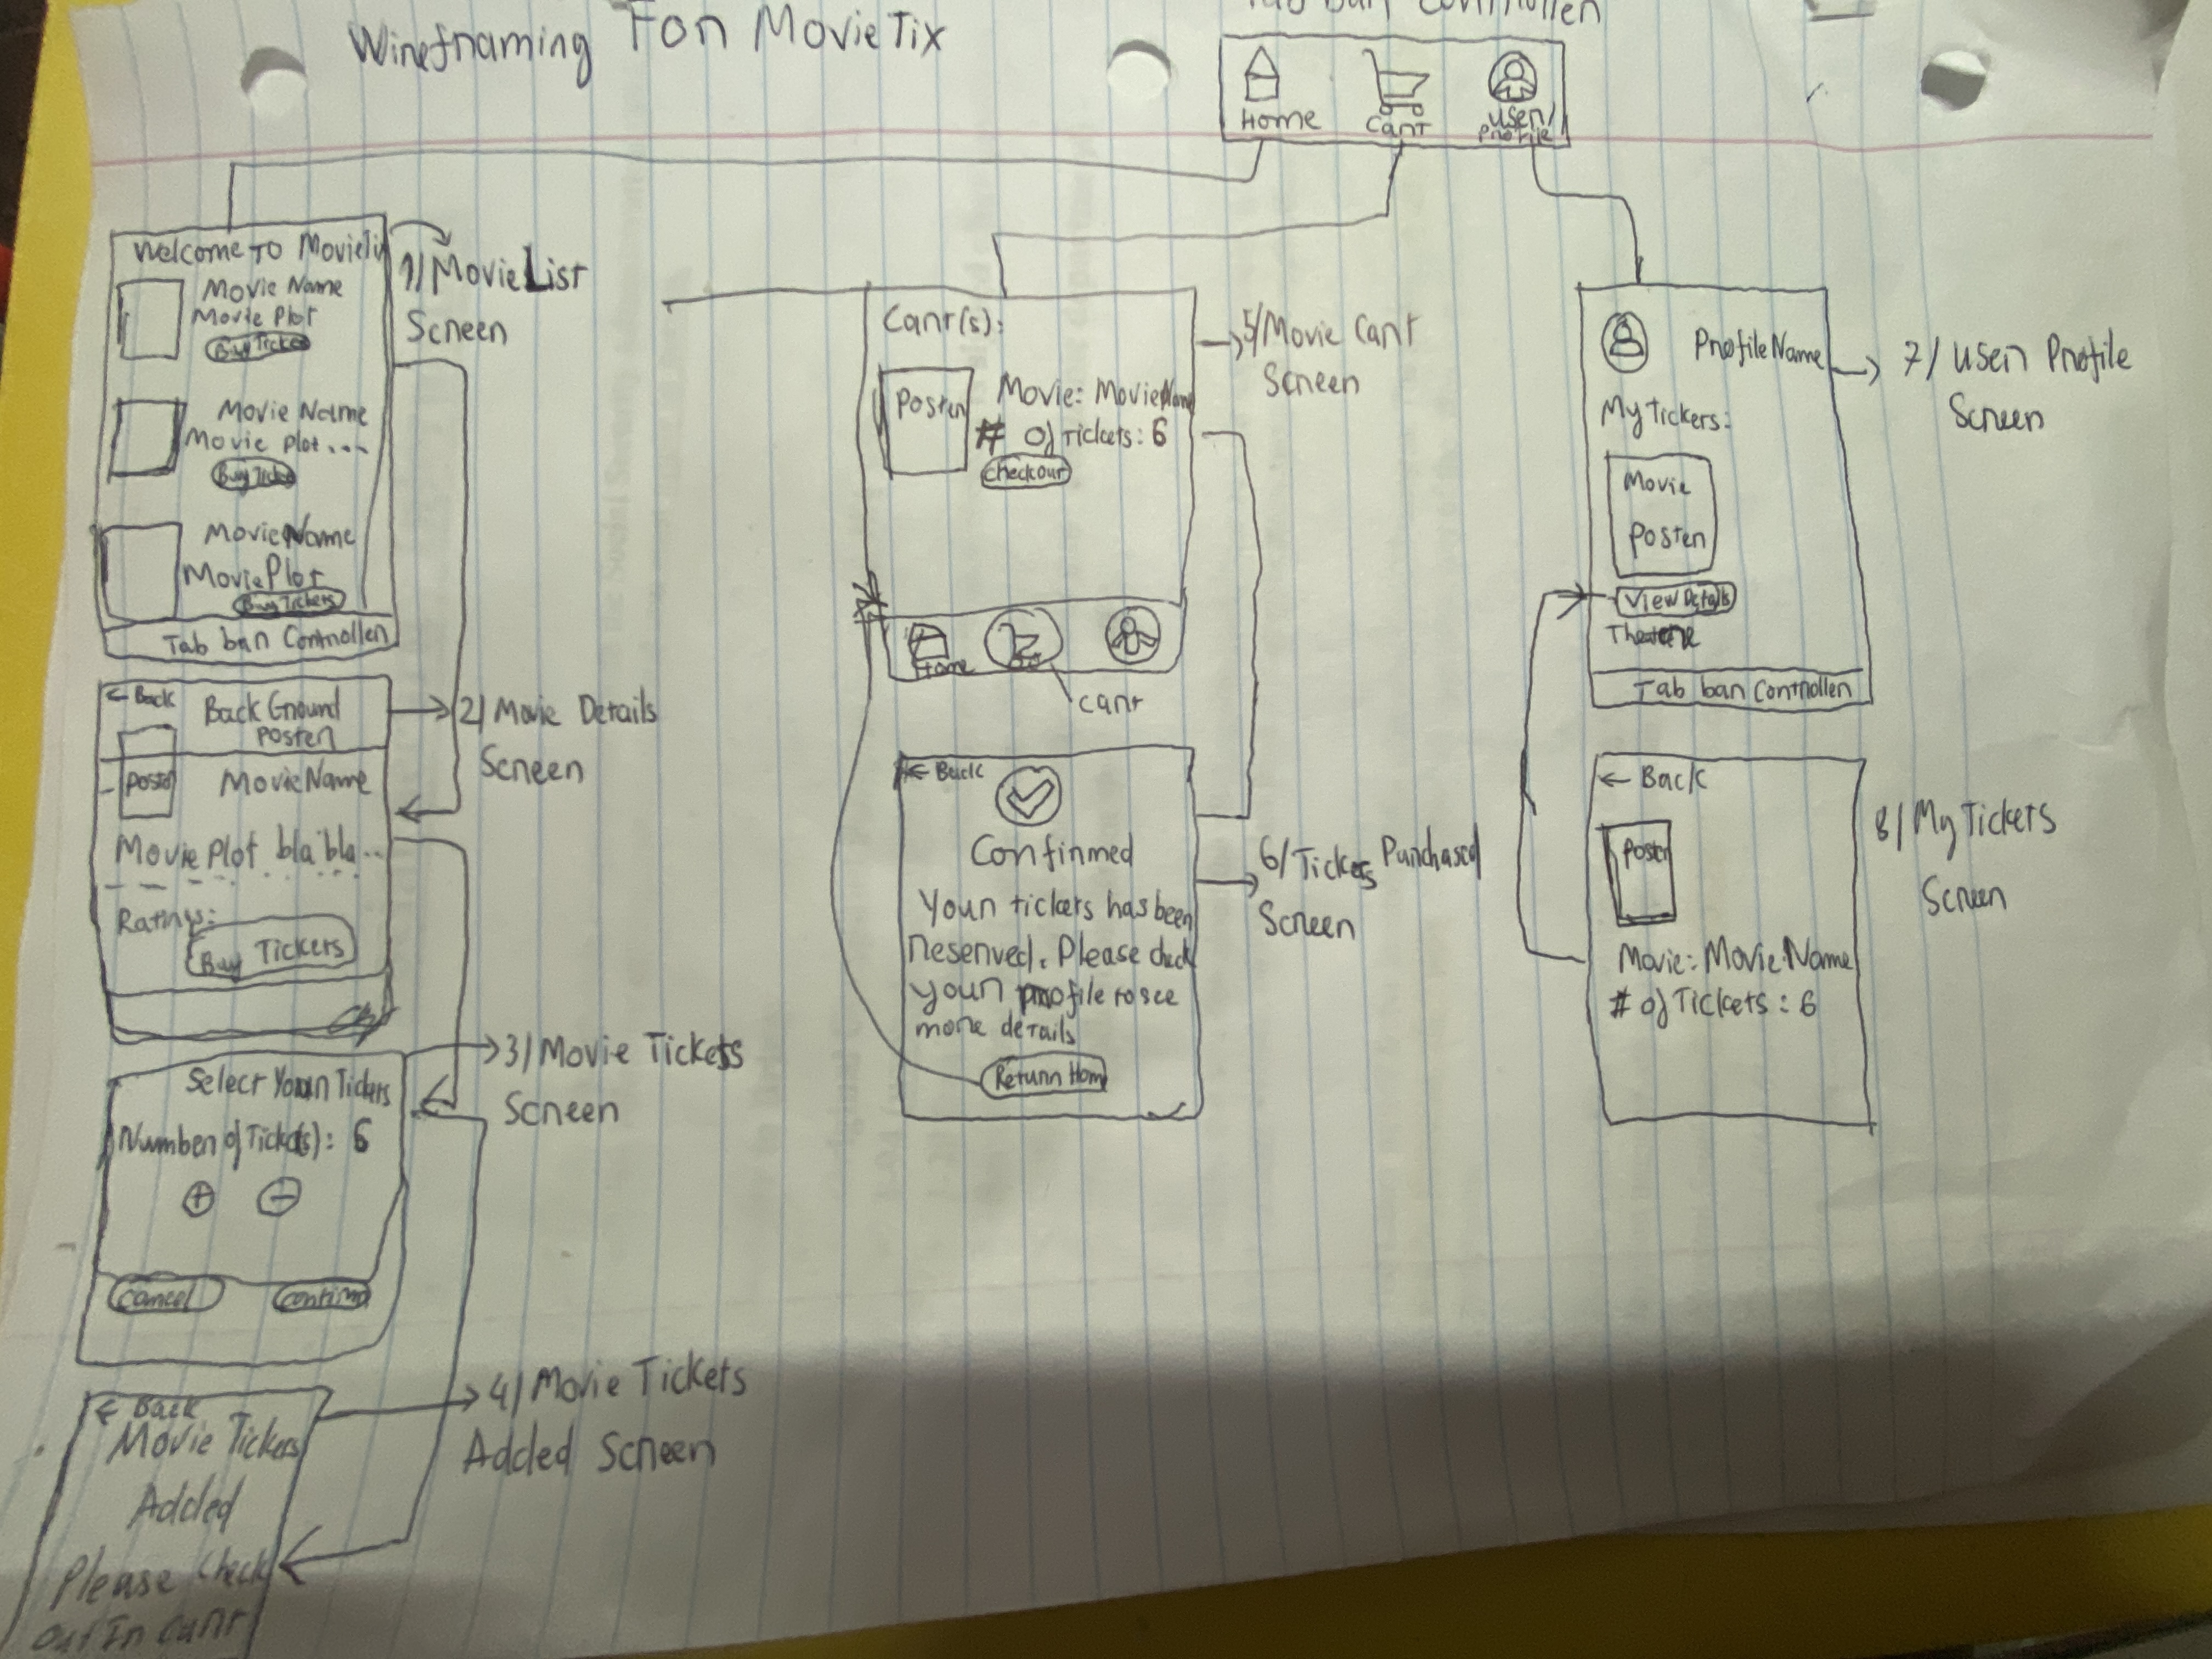 Wireframing For MovieTix
Tab bar Controller
Home
Cart
User/
Profile
Welcome To MovieTix
Movie Name
Movie Plot
Buy Ticket
Movie Name
Movie Plot...
Buy Ticket
Movie Name
Movie Plot
Buy Tickets
Tab bar Controller
1/ Movie List
Screen
← Back
Back Ground
Poster
Poster
Movie Name
Movie Plot bla bla..
Ratings:
Buy Tickets
2/ Movie Details
Screen
Select Your Tickets
Number of Ticket(s): 6
+
-
Cancel
Continue
3/ Movie Tickets
Screen
← Back
Movie Tickets
Added
Please Check
Out In Cart
4/ Movie Tickets
Added Screen
Cart(s):
Poster
Movie: Movie Name
# of Tickets: 6
Checkout
Home
Cart
5/ Movie Cart
Screen
← Back
Confirmed
Your tickets has been
reserved. Please check
your profile to see
more details
Return Home
6/ Tickets Purchased
Screen
Profile Name
My Tickets:
Movie
Poster
View Details
Theatre
Tab bar Controller
7/ User Profile
Screen
← Back
Poster
Movie: Movie Name
# of Tickets: 6
8/ My Tickets
Screen